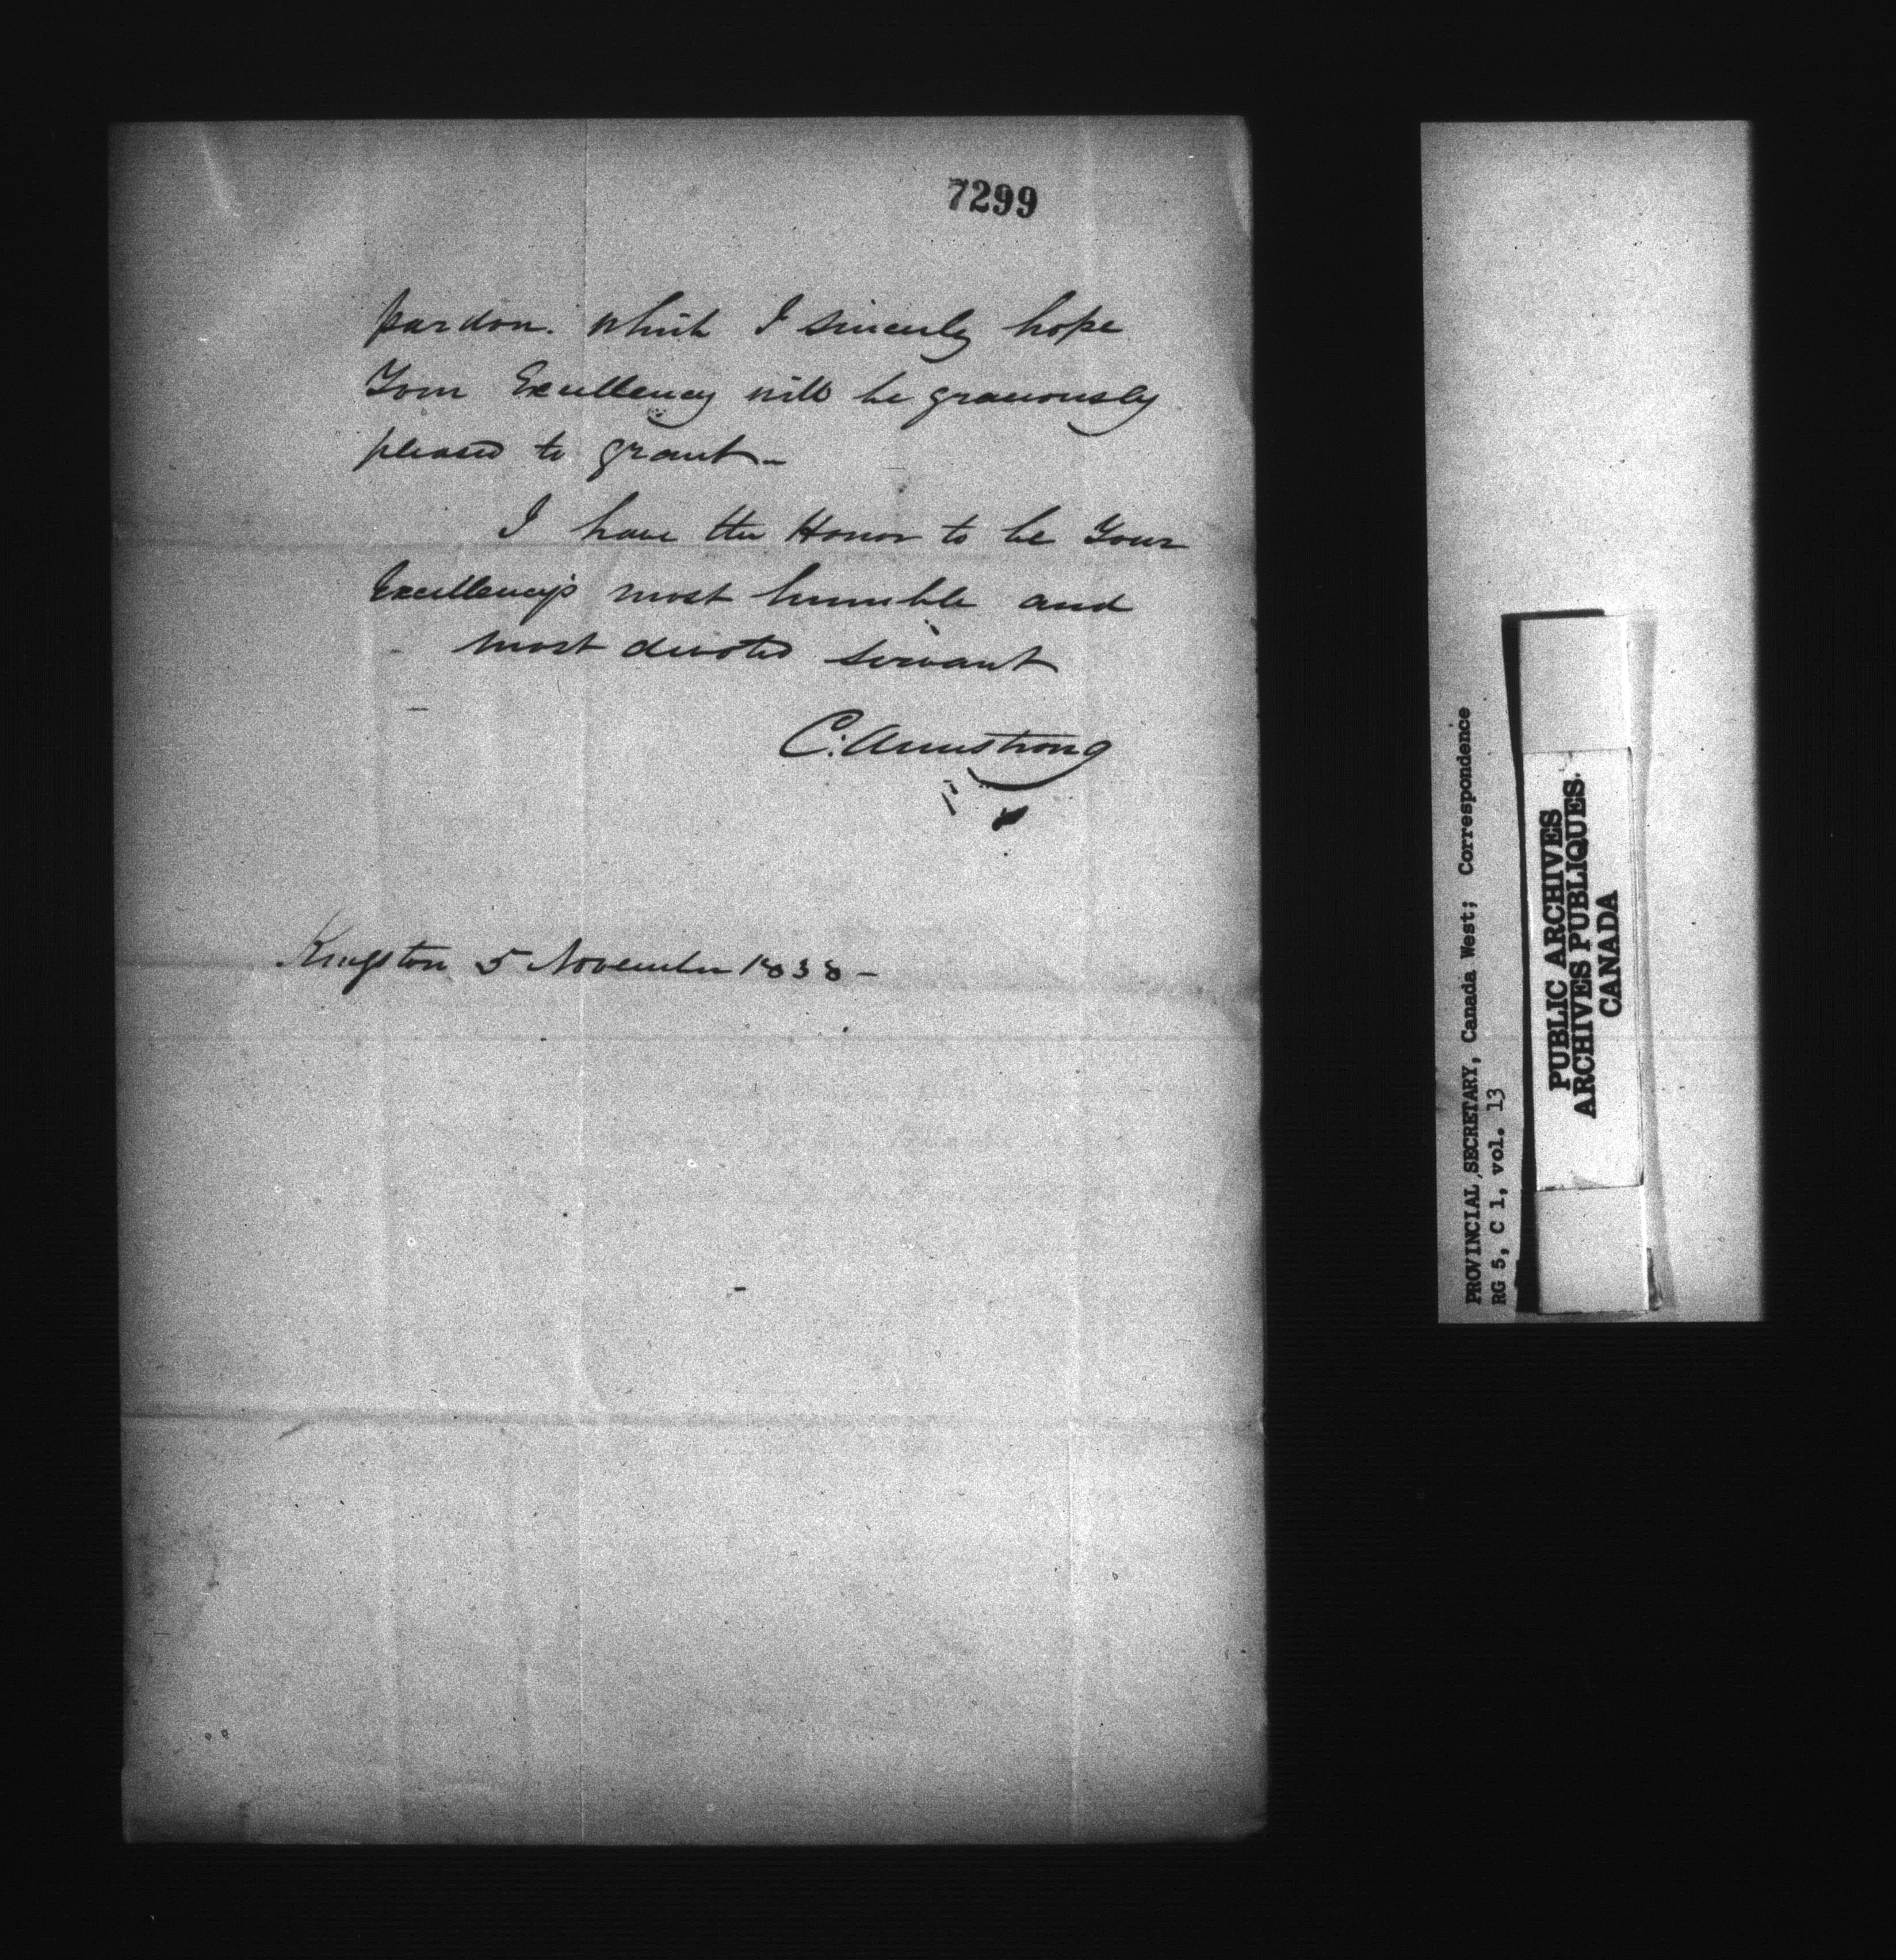 7299
pardon. which I sincerely hope
Your Excellency will be graciously
pleased to grant—
I have the Honor to be Your
Excellency's most humble and
most devoted servant
C. Armstrong
Kingston 5 November 1838—
PROVINCIAL SECRETARY, Canada West; Correspondence
RG 5, C 1, vol. 13
PUBLIC ARCHIVES
ARCHIVES PUBLIQUES
CANADA